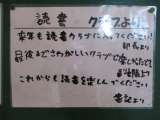 読書クラブより
来年も読書クラブに入ってください!
部長より
最後までさわがしいクラブで楽しかったです
副部長より
これからも読書を楽しんでください
書記より